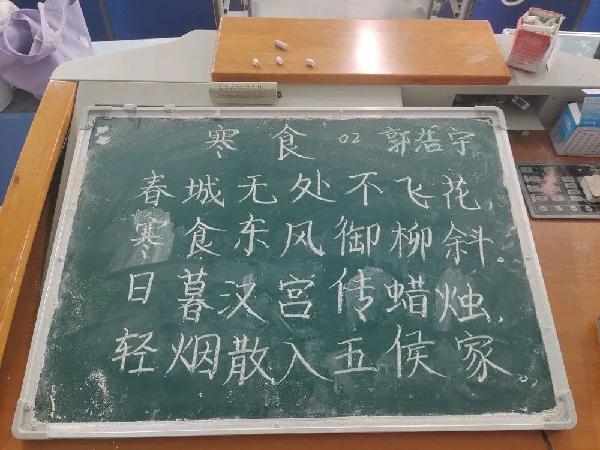 寒食 02 郭若宇
春城无处不飞花
寒食东风御柳斜。
日暮汉宫传蜡烛,
轻烟散入五侯家。